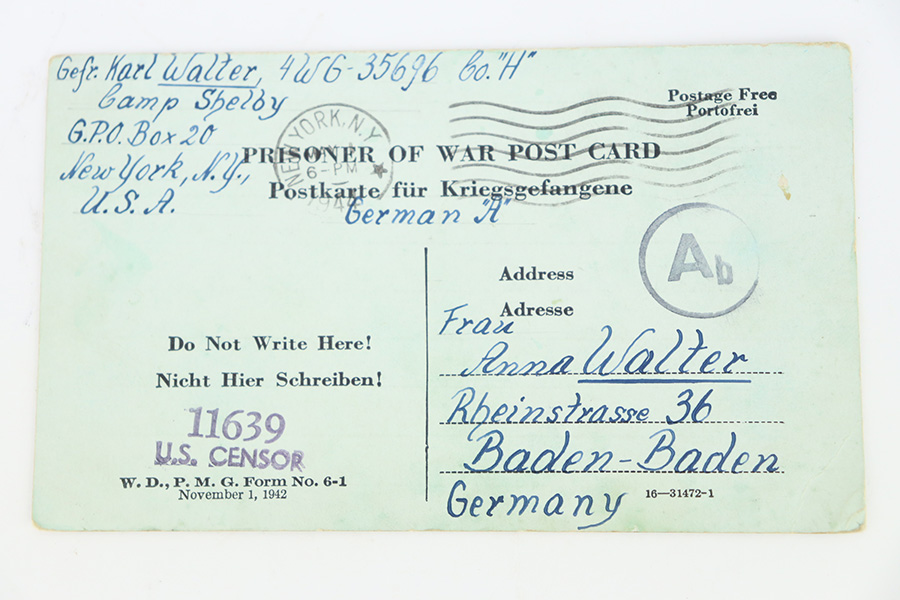 Gefr. Karl Walter, 4WG-35696 Co. "H"
Camp Shelby
G.P.O. Box 20
New York, N.Y.,
U.S.A.
Postage Free
Portofrei
NEW YORK, N.Y.
6-PM
1944
PRISONER OF WAR POST CARD
Postkarte für Kriegsgefangene
German "A"
Ab
Address
Adresse
Frau
Anna Walter
Rheinstrasse 36
Baden-Baden
Germany
16—31472-1
Do Not Write Here!
Nicht Hier Schreiben!
11639
U.S. CENSOR
W. D., P. M. G. Form No. 6-1
November 1, 1942